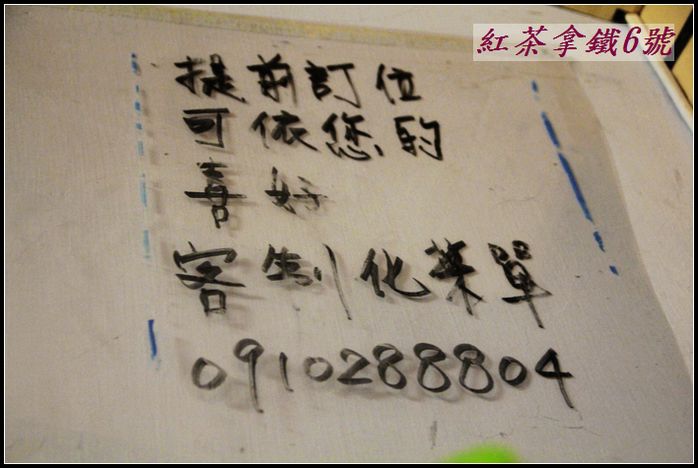 紅茶拿鐵6號
提前訂位
可依您的
喜好
客制化菜單
0910288804